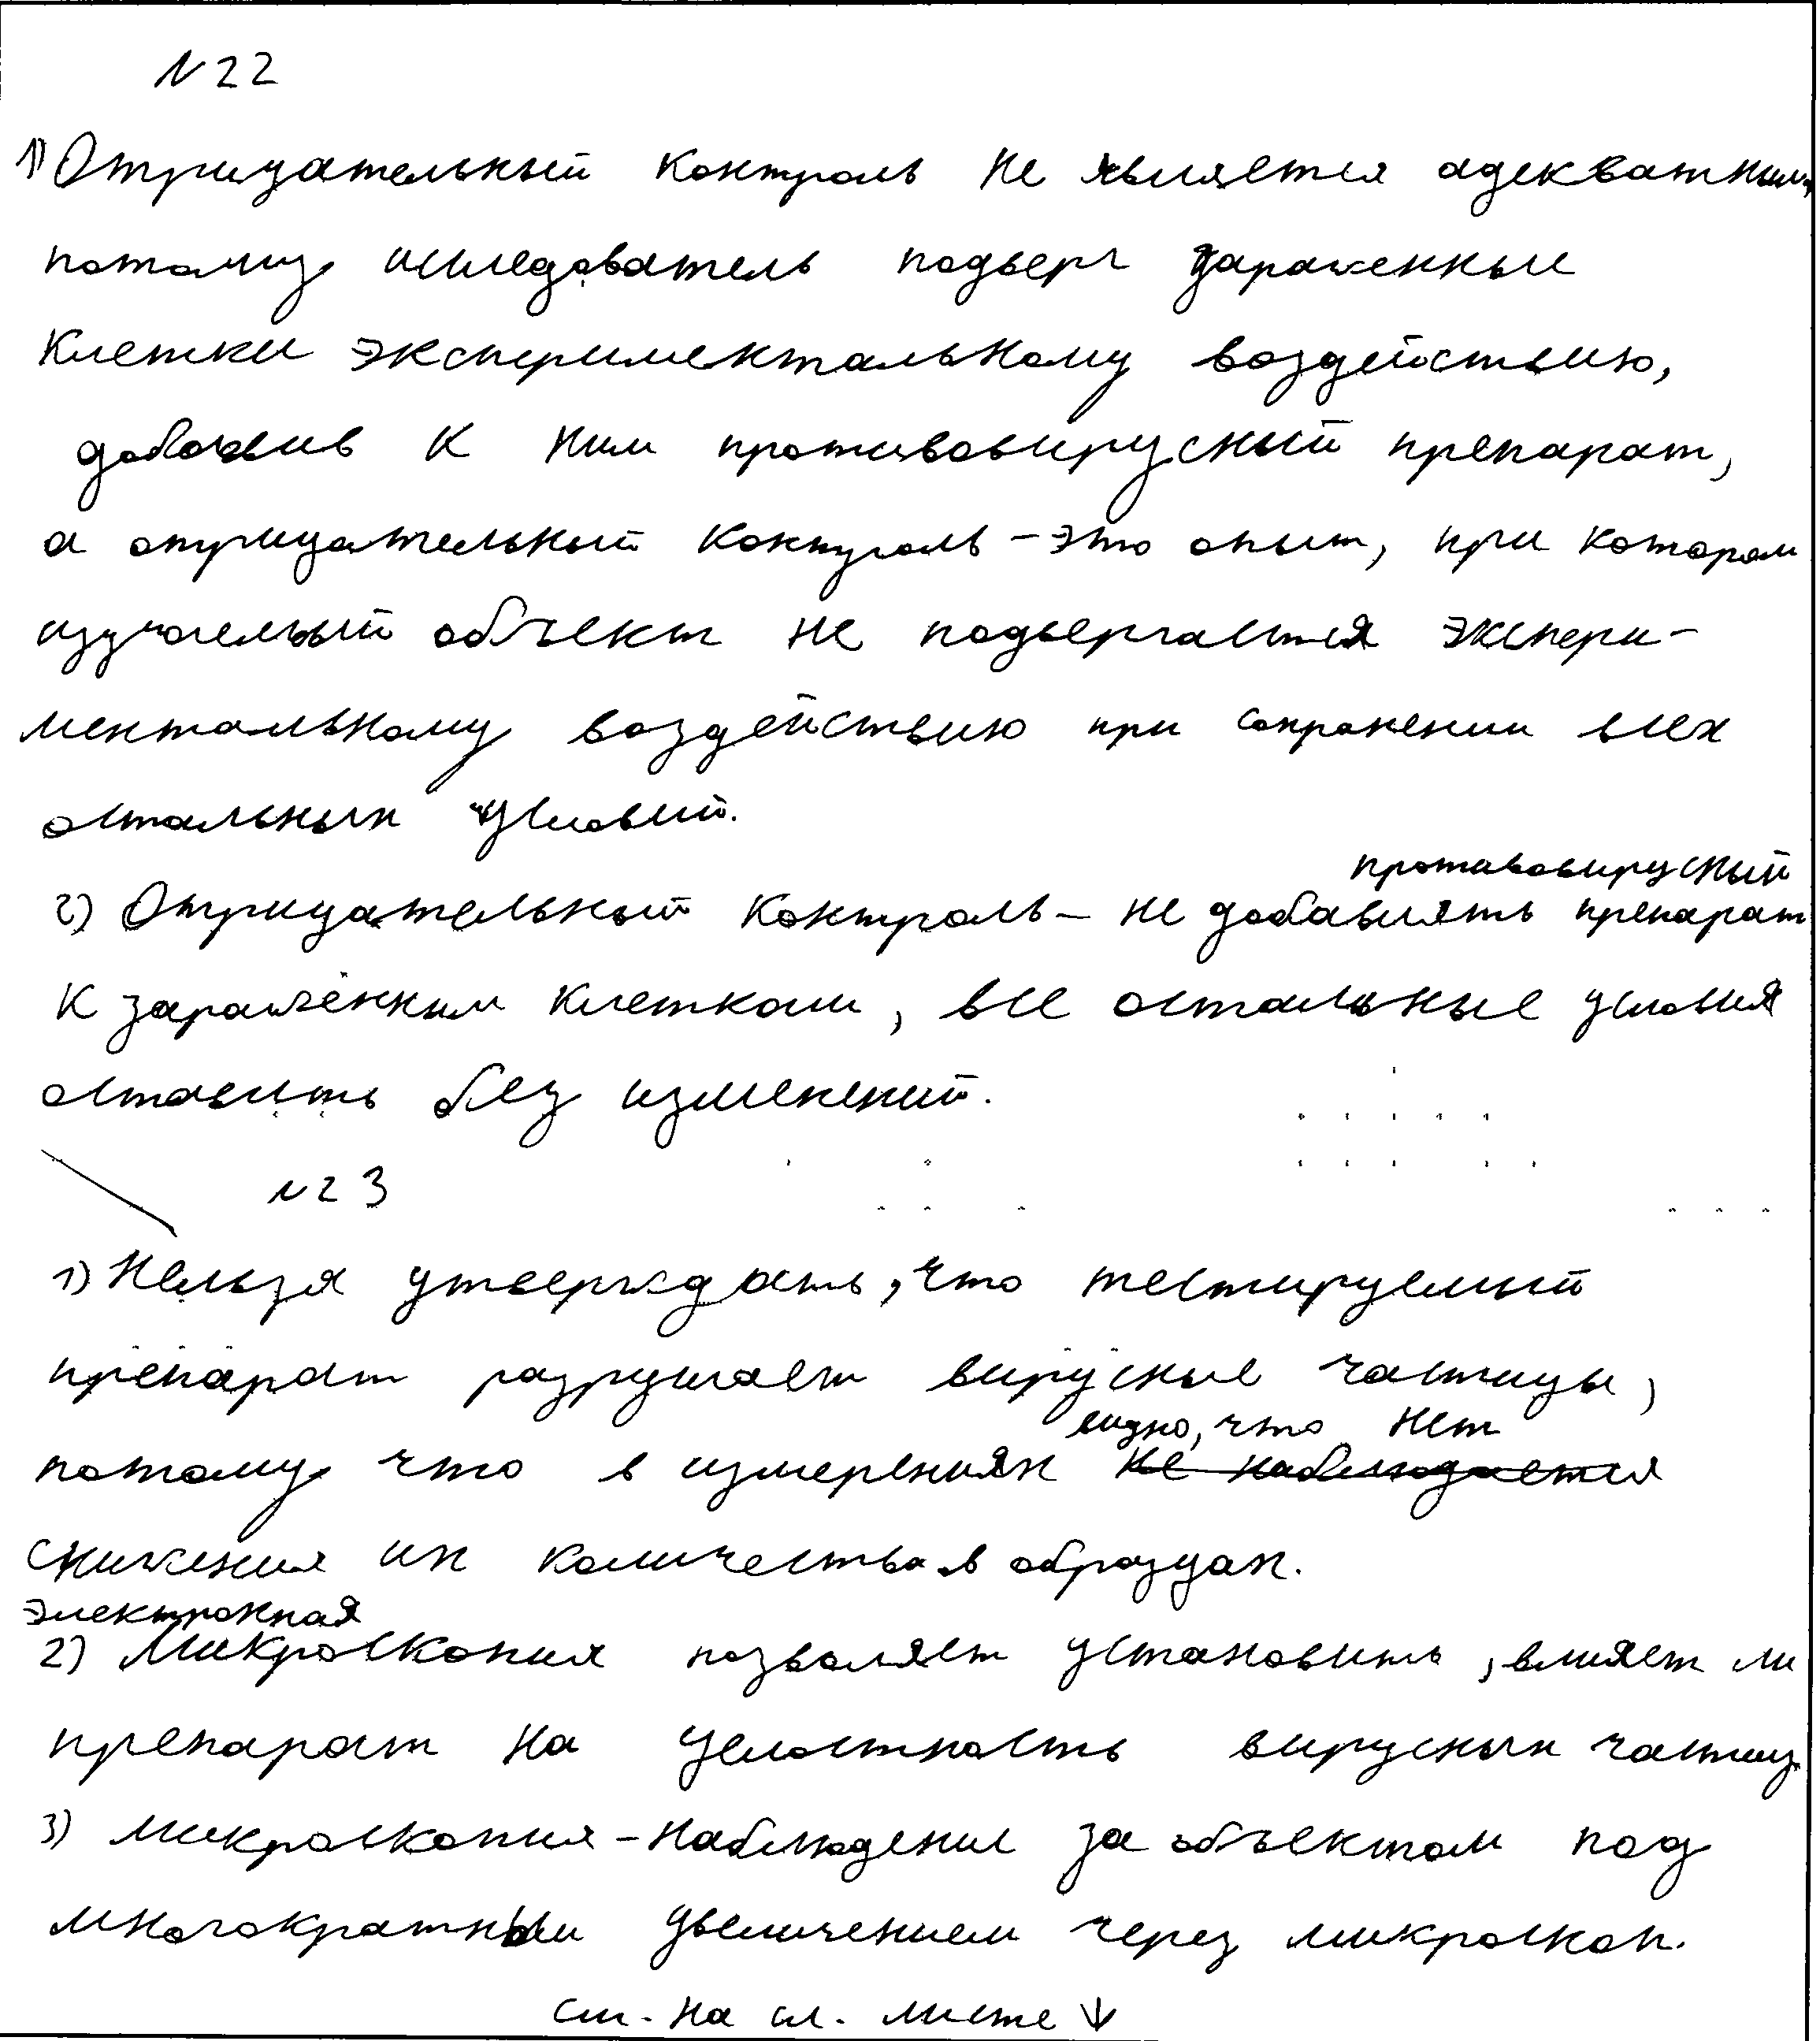 N22
1) Отрицательный контроль не является адекватным,
потому исследователь подверг зараженные
клетки экспериментальному воздействию,
добавив к ним противовирусный препарат,
а отрицательный контроль - это опыт, при котором
изучаемый объект не подвергается экспери-
ментальному воздействию при сохранении всех
остальных условий.
противовирусный
2) Отрицательный контроль - не добавлять препарат
к заражённым клеткам, все остальные условия
оставить без изменений.
N23
1) Нельзя утверждать, что тестируемый
препарат разрушает вирусные частицы,
видно, что нет
потому что в измерениях не наблюдается
снижения их количества в образцах.
электронная
2) Микроскопия позволяет установить, влияет ли
препарат на целостность вирусных частиц
3) Микроскопия - наблюдение за объектом под
многократным увеличением через микроскоп.
см. на сл. листе ↓